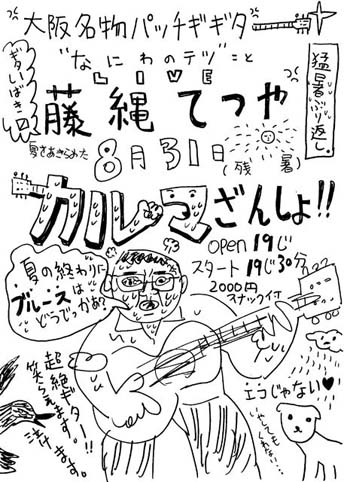 大阪名物パッチギギタ
"なにわのテツ"こと
LIVE
藤縄てつや
猛暑ぶり返し。
8月31日(残暑)
カルマざんしょ!!
open 19じ
スタート 19じ30分
2000円
スナックイイ
夏の終わりに
ブルースは
どうでっかぁ?
超絶ギター!!
笑えます。
泣けます。
エコじゃない♥